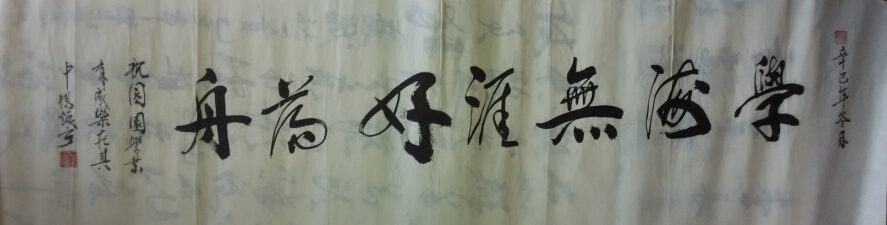 辛巳年冬月
學海無涯好為舟
祝圓圓學業
有成樂在其
中